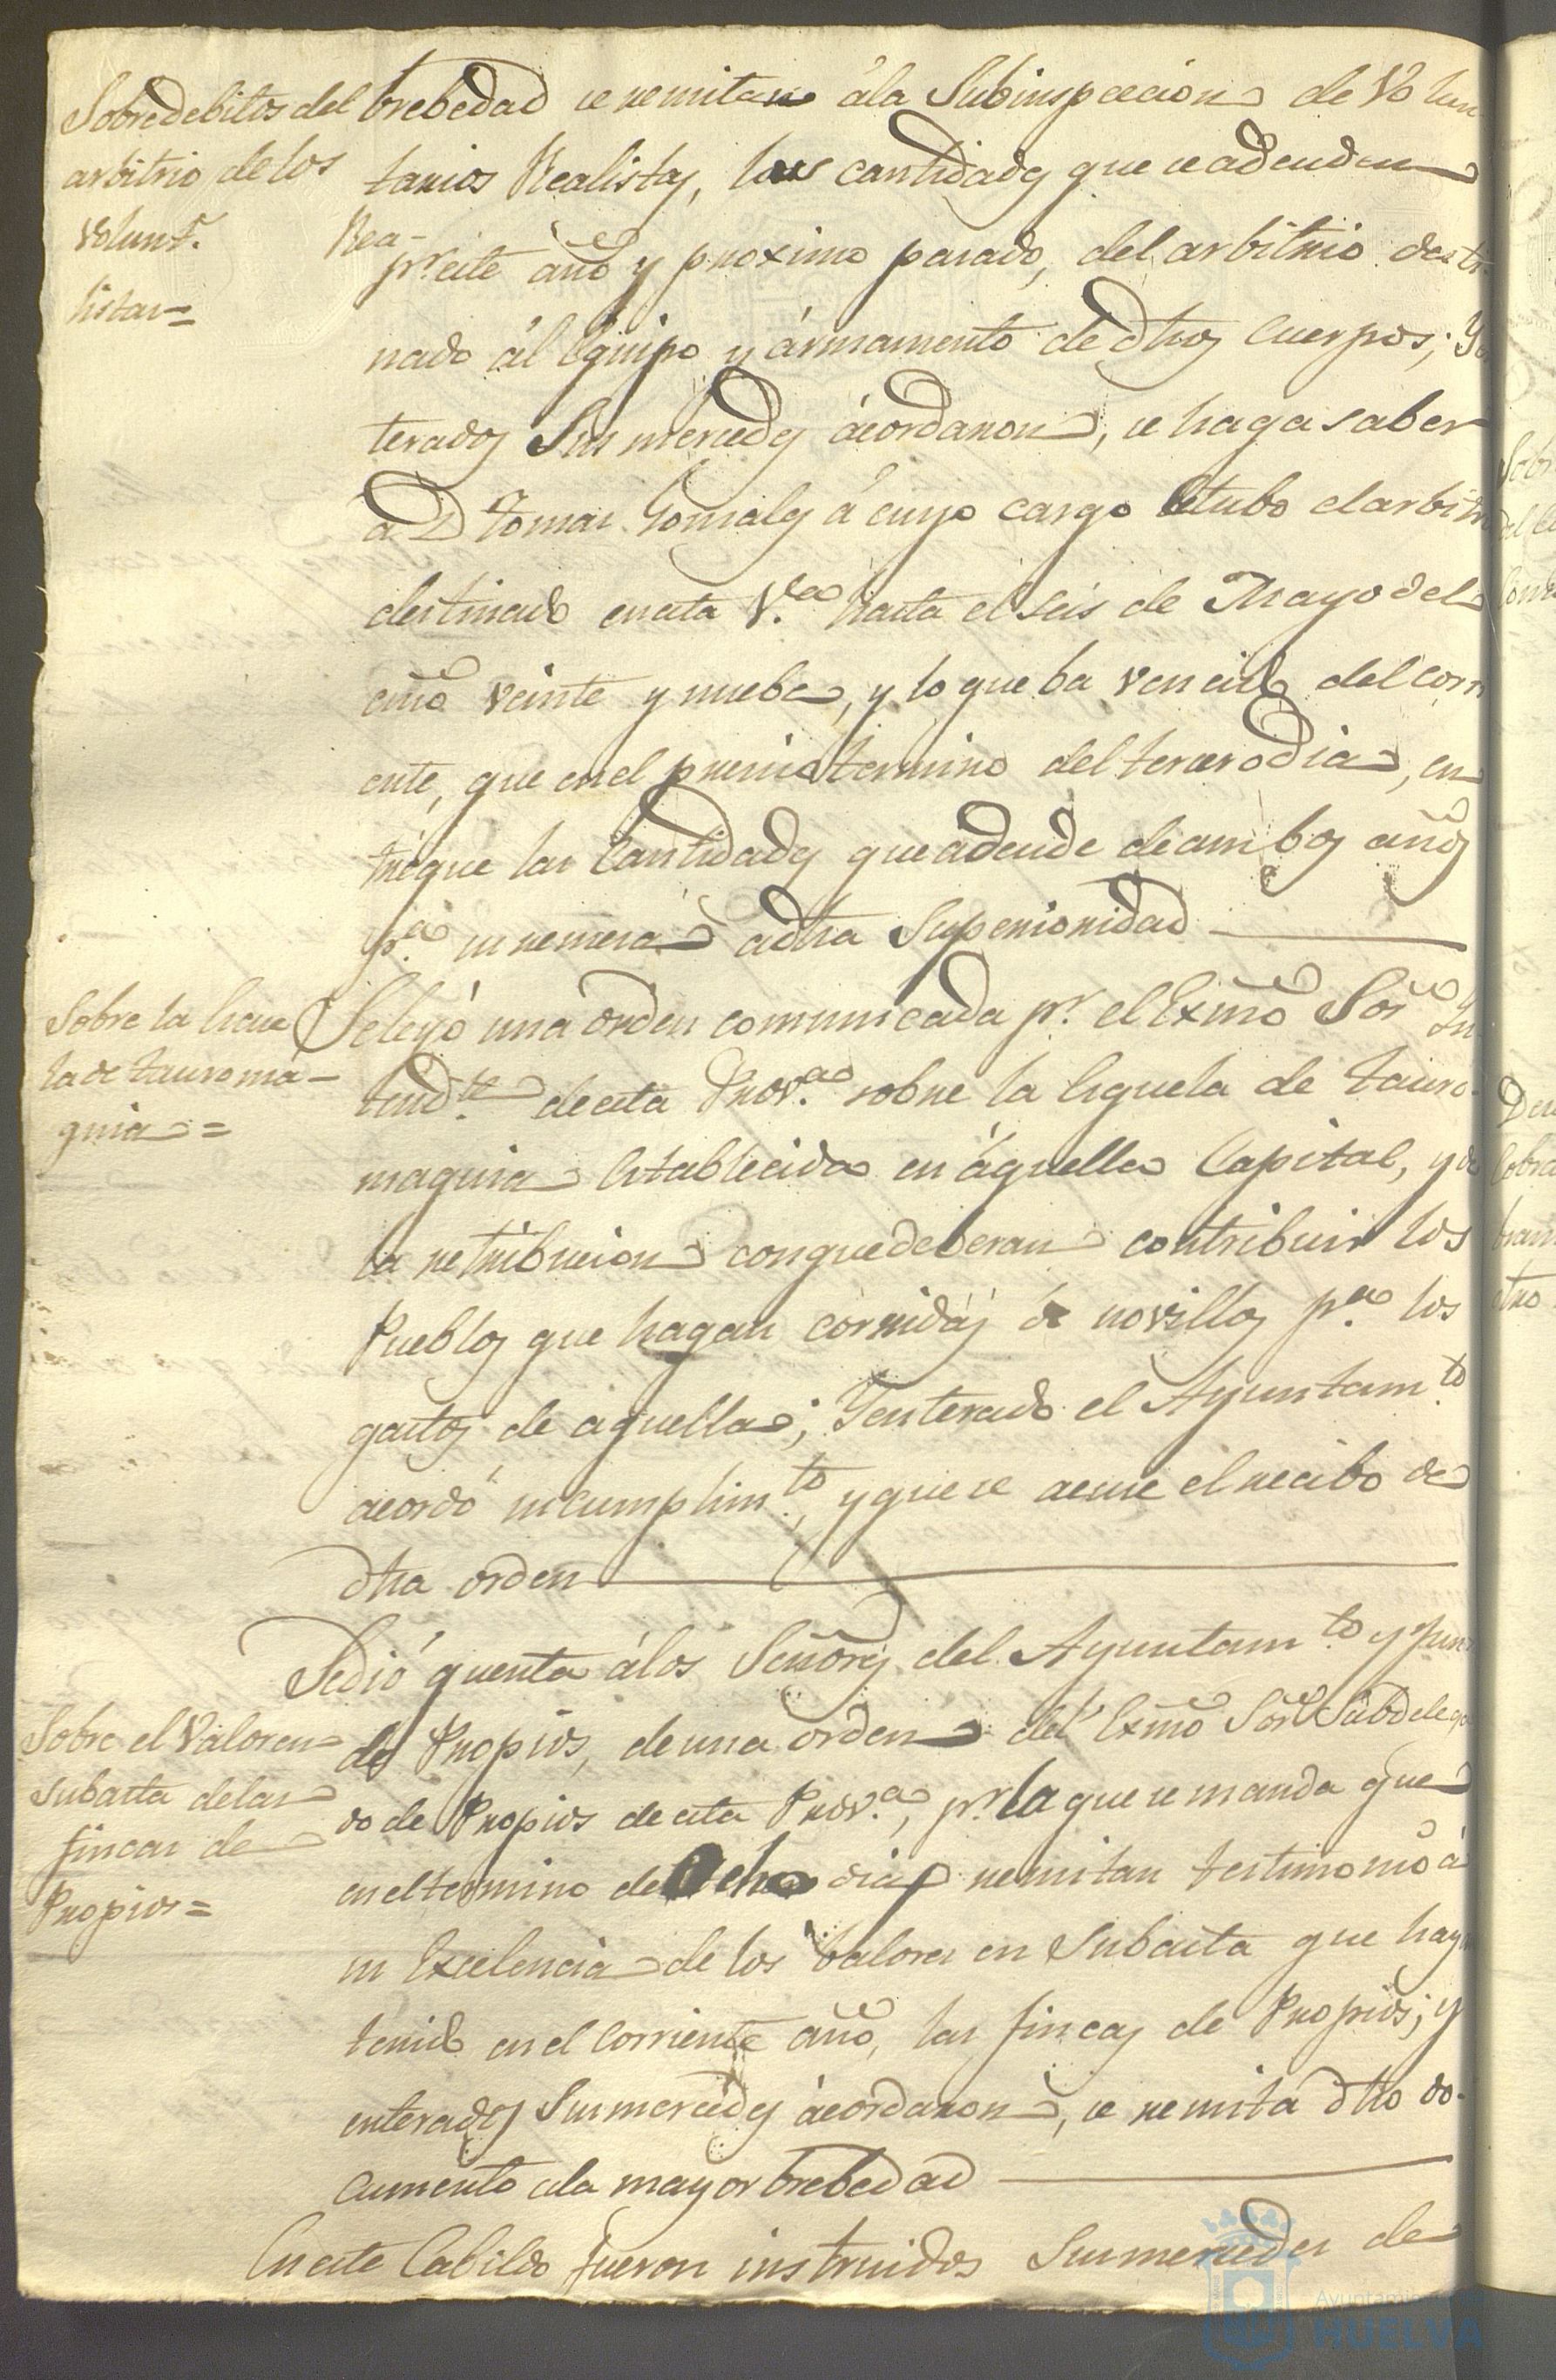 Sobre debitos del
arbitrio de los
Volunt.s Rea-
listas=
brebedad se remitan á la Subinspeccion de Volun
tarios Realistas, las cantidades que se adeuden
pr. este año y proximo pasado, del arbitrio desti
nado al Equipo y ármamento de dhos Cuerpos; Y
terados Sus mercedes ácordaron, se haga saber
a D Tomas Gonsales á cuyo cargo estubo el arbitrio
destinado en esta V.a hasta el seis de Mayo del
año veinte y nuebe, y lo que ba vencido del corri
ente, que en el preciso termino del tercero dia, en
tregue las Cantidades que adeude de ambos años
p.a su remesa a dha Superioridad
Sobre la Escue
la de tauroma-
quia=
Se leyó una orden comunicada pr. el Exmo Sor In
tend.te de esta Prov.a sobre la Esquela de tauro-
maquia Establecida en áquella Capital, y de
la retribucion con que deberan contribuir los
Pueblos que hagan corridas de novillos p.a los
gastos de aquella; Y enterado el Ayuntam.to
acordó su cumplim.to, y que se acuse el recibo de
dha orden
Sobre el Valor en
subasta de las
fincas de
Propios=
Se dió quenta á los Señores del Ayuntam.to y Jun
de Propios, de una orden del Exmo Sor Subdelega
do de Propios de esta Prov.a, pr. la que se manda que
en el termino de Ocho dias remitan testimonio á
su Excelencia de los balores en Subasta que hay
tenido en el corriente año, las fincas de Propios; y
enterados Sus mercedes ácordaron, se remita dho do-
cumento a la mayor brebedad
En este Cabildo fueron instruidos Sus mercedes de
Ayuntamiento
HUELVA